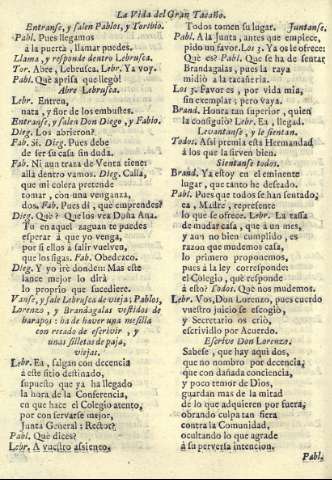 La Vida del Gran Tacaño.
Entranse, y salen Pablos, y Toribio.
Pabl. Pues llegamos
à la puerta, llamar puedes.
Llama, y responde dentro Lebrusca.
Tor. Abre, Lebrusca. Lebr. Ya voy.
Pabl. Què aprisa que llegó!
Abre Lebrusca.
Lebr. Entren,
nata, y flor de los embustes.
Entranse, y salen Don Diego, y Fabio.
Dieg. Los abrieron?
Fab. Sì. Dieg. Pues debe
de ser su casa sin duda.
Fab. Ni aun traza de Venta tiene:
allà dentro vamos. Dieg. Calla,
que mi colera pretende
tomar, con una venganza,
dos. Fab. Pues di, que emprendes?
Dieg. Què? Que los vea Doña Ana.
Tu en aquel zaguan te puedes
esperar à que yo venga,
por si ellos à salir vuelven,
que los sigas. Fab. Obedezco.
Dieg. Y yo irè donde: Mas este
lance mejor lo dirà
lo proprio que sucediere.
Vanse, y sale Lebrusca de vieja; Pablos,
Lorenzo, y Brandagalas vestidos de
harapos: ha de haver una mesilla
con recado de escrivir, y
unas silletas de paja,
viejas.
Lebr. Ea, salgan con decencia
à este sitio destinado,
supuesto que ya ha llegado
la hora de la Conferencia,
en que hace el Colegio atento,
por conservarse mejor,
Junta General: Rector?
Pabl. Què dices?
Lebr. A vuestro assiento.
Todos tomen su lugar. Juntanse.
Pabl. A la Junta, antes que empiece,
pido un favor. Los 3. Ya os le ofrece:
Què es? Pabl. Que se ha de sentar
Brandagalas, pues la raya
midiò à la tacañeria.
Los 3. Favor es, por vida mia,
sin exemplar; pero vaya.
Brand. Honra tan superior, quien
la consiguiò? Lebr. Ea, llegad.
Levantanse, y le sientan.
Todos. Assi premia esta Hermandad
à los que la sirven bien.
Sientanse todos.
Brand. Ya estoy en el eminente
lugar, que tanto he deseado.
Pabl. Pues que todos se han sentado;
ea, Madre, represente
lo que se ofrece. Lebr. La tassa
de mudar casa, que à un mes,
y aun no bien cumplido, es
razon que mudemos casa,
lo primero proponemos,
pues à la ley corresponde:
el Colegio, què responde
à esto? Todos. Què nos mudemos.
Lebr. Vos, Don Lorenzo, pues cuerdo
vuestro juicio se esfogiò,
y Secretario os criò,
escrividlo por Acuerdo.
Escrive Don Lorenzo.
Sabese, que hay aqui dos,
que no nombro por decencia,
que con dañada conciencia,
y poco temor de Dios,
guardan mas de la mitad
de lo que adquieren por fuera;
obrando culpa tan fiera
contra la Comunidad,
ocultando lo que agrade
à su perversa intencion.
Pabl.